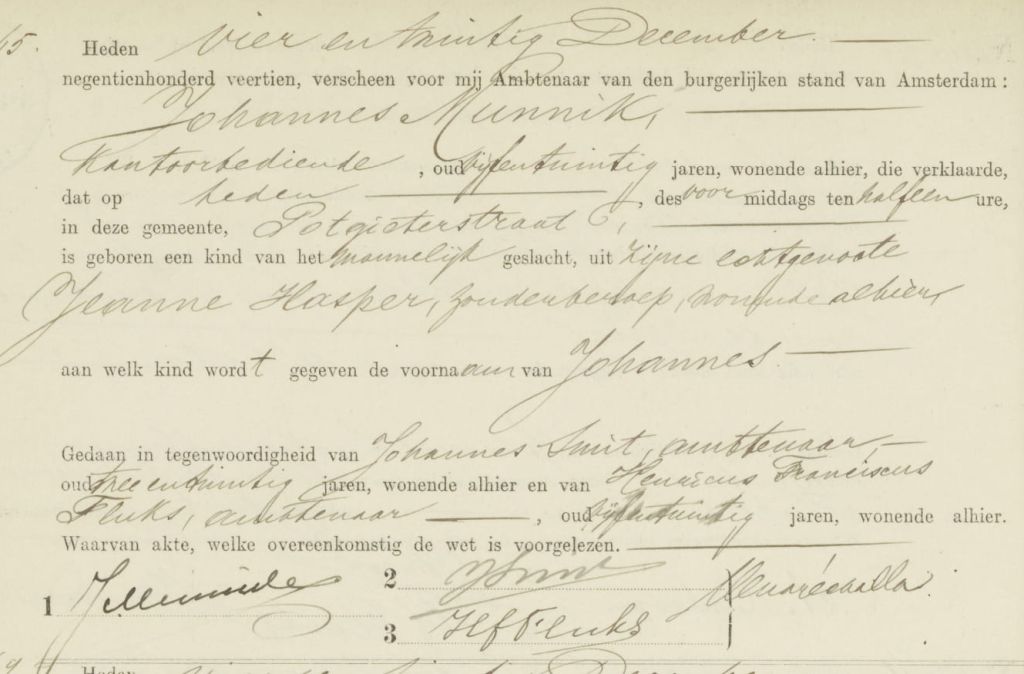 Heden vier en twintig December.
negentienhonderd veertien, verscheen voor mij Ambtenaar van den burgerlijken stand van Amsterdam :
Johannes Munnik,
Kantoorbediende, oud vijfentwintig jaren, wonende alhier, die verklaarde,
dat op heden, des voormiddags ten half een ure,
in deze gemeente, Potgieterstraat 6,
is geboren een kind van het mannelijk geslacht, uit zijne echtgenoote
Jeanne Hasper, zonder beroep, wonende alhier,
aan welk kind wordt gegeven de voornaam van Johannes
Gedaan in tegenwoordigheid van Johannes Smit, ambtenaar,
oud twee en twintig jaren, wonende alhier en van Henricus Franciscus
Fluks, ambtenaar, oud vijfentwintig jaren, wonende alhier.
Waarvan akte, welke overeenkomstig de wet is voorgelezen.
2 JSmit
1 JMunnik
3 HfFluks
Heden